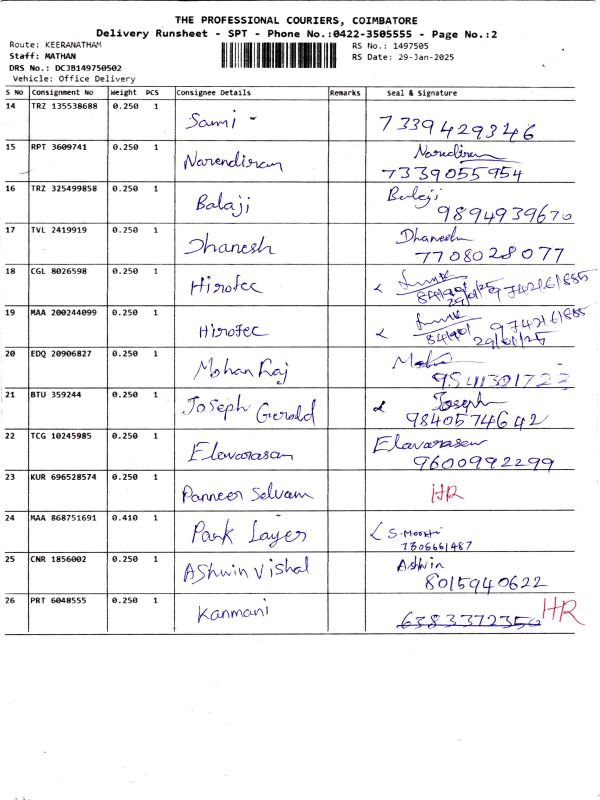 THE PROFESSIONAL COURIERS, COIMBATORE
Delivery Runsheet - SPT - Phone No.:0422-3505555 - Page No.:2
Route: KEERANATHAM RS No.: 1497505
Staff: MATHAN RS Date: 29-Jan-2025
DRS No.: DCJB149750502
Vehicle: Office Delivery
S No Consignment No Weight PCS Consignee Details Remarks Seal & Signature
14 TRZ 135538688 0.250 1 Sami - 7339429346
15 RPT 3609741 0.250 1 Narendiran Narediran
7339055954
16 TRZ 325499858 0.250 1 Balaji Balaji
9894939670
17 TVL 2419919 0.250 1 Dhanesh Dhanesh
7708028077
18 CGL 8026598 0.250 1 Hirotec 9742161885
29/01/25
19 MAA 200244099 0.250 1 Hirotec 9742161885
29/01/25
20 EDQ 20906827 0.250 1 Mohan Raj
21 BTU 359244 0.250 1 Joseph Gerold Joseph
9840574642
22 TCG 10245985 0.250 1 Elavarasan Elavarasan
9600992299
23 KUR 696528574 0.250 1 Panneer Selvam HR
24 MAA 868751691 0.410 1 Park Layer S. Moorthi
7305661487
25 CNR 1856002 0.250 1 Ashwin Vishal Ashwin
8015940622
26 PRT 6048555 0.250 1 Kanmani 6383372350 HR